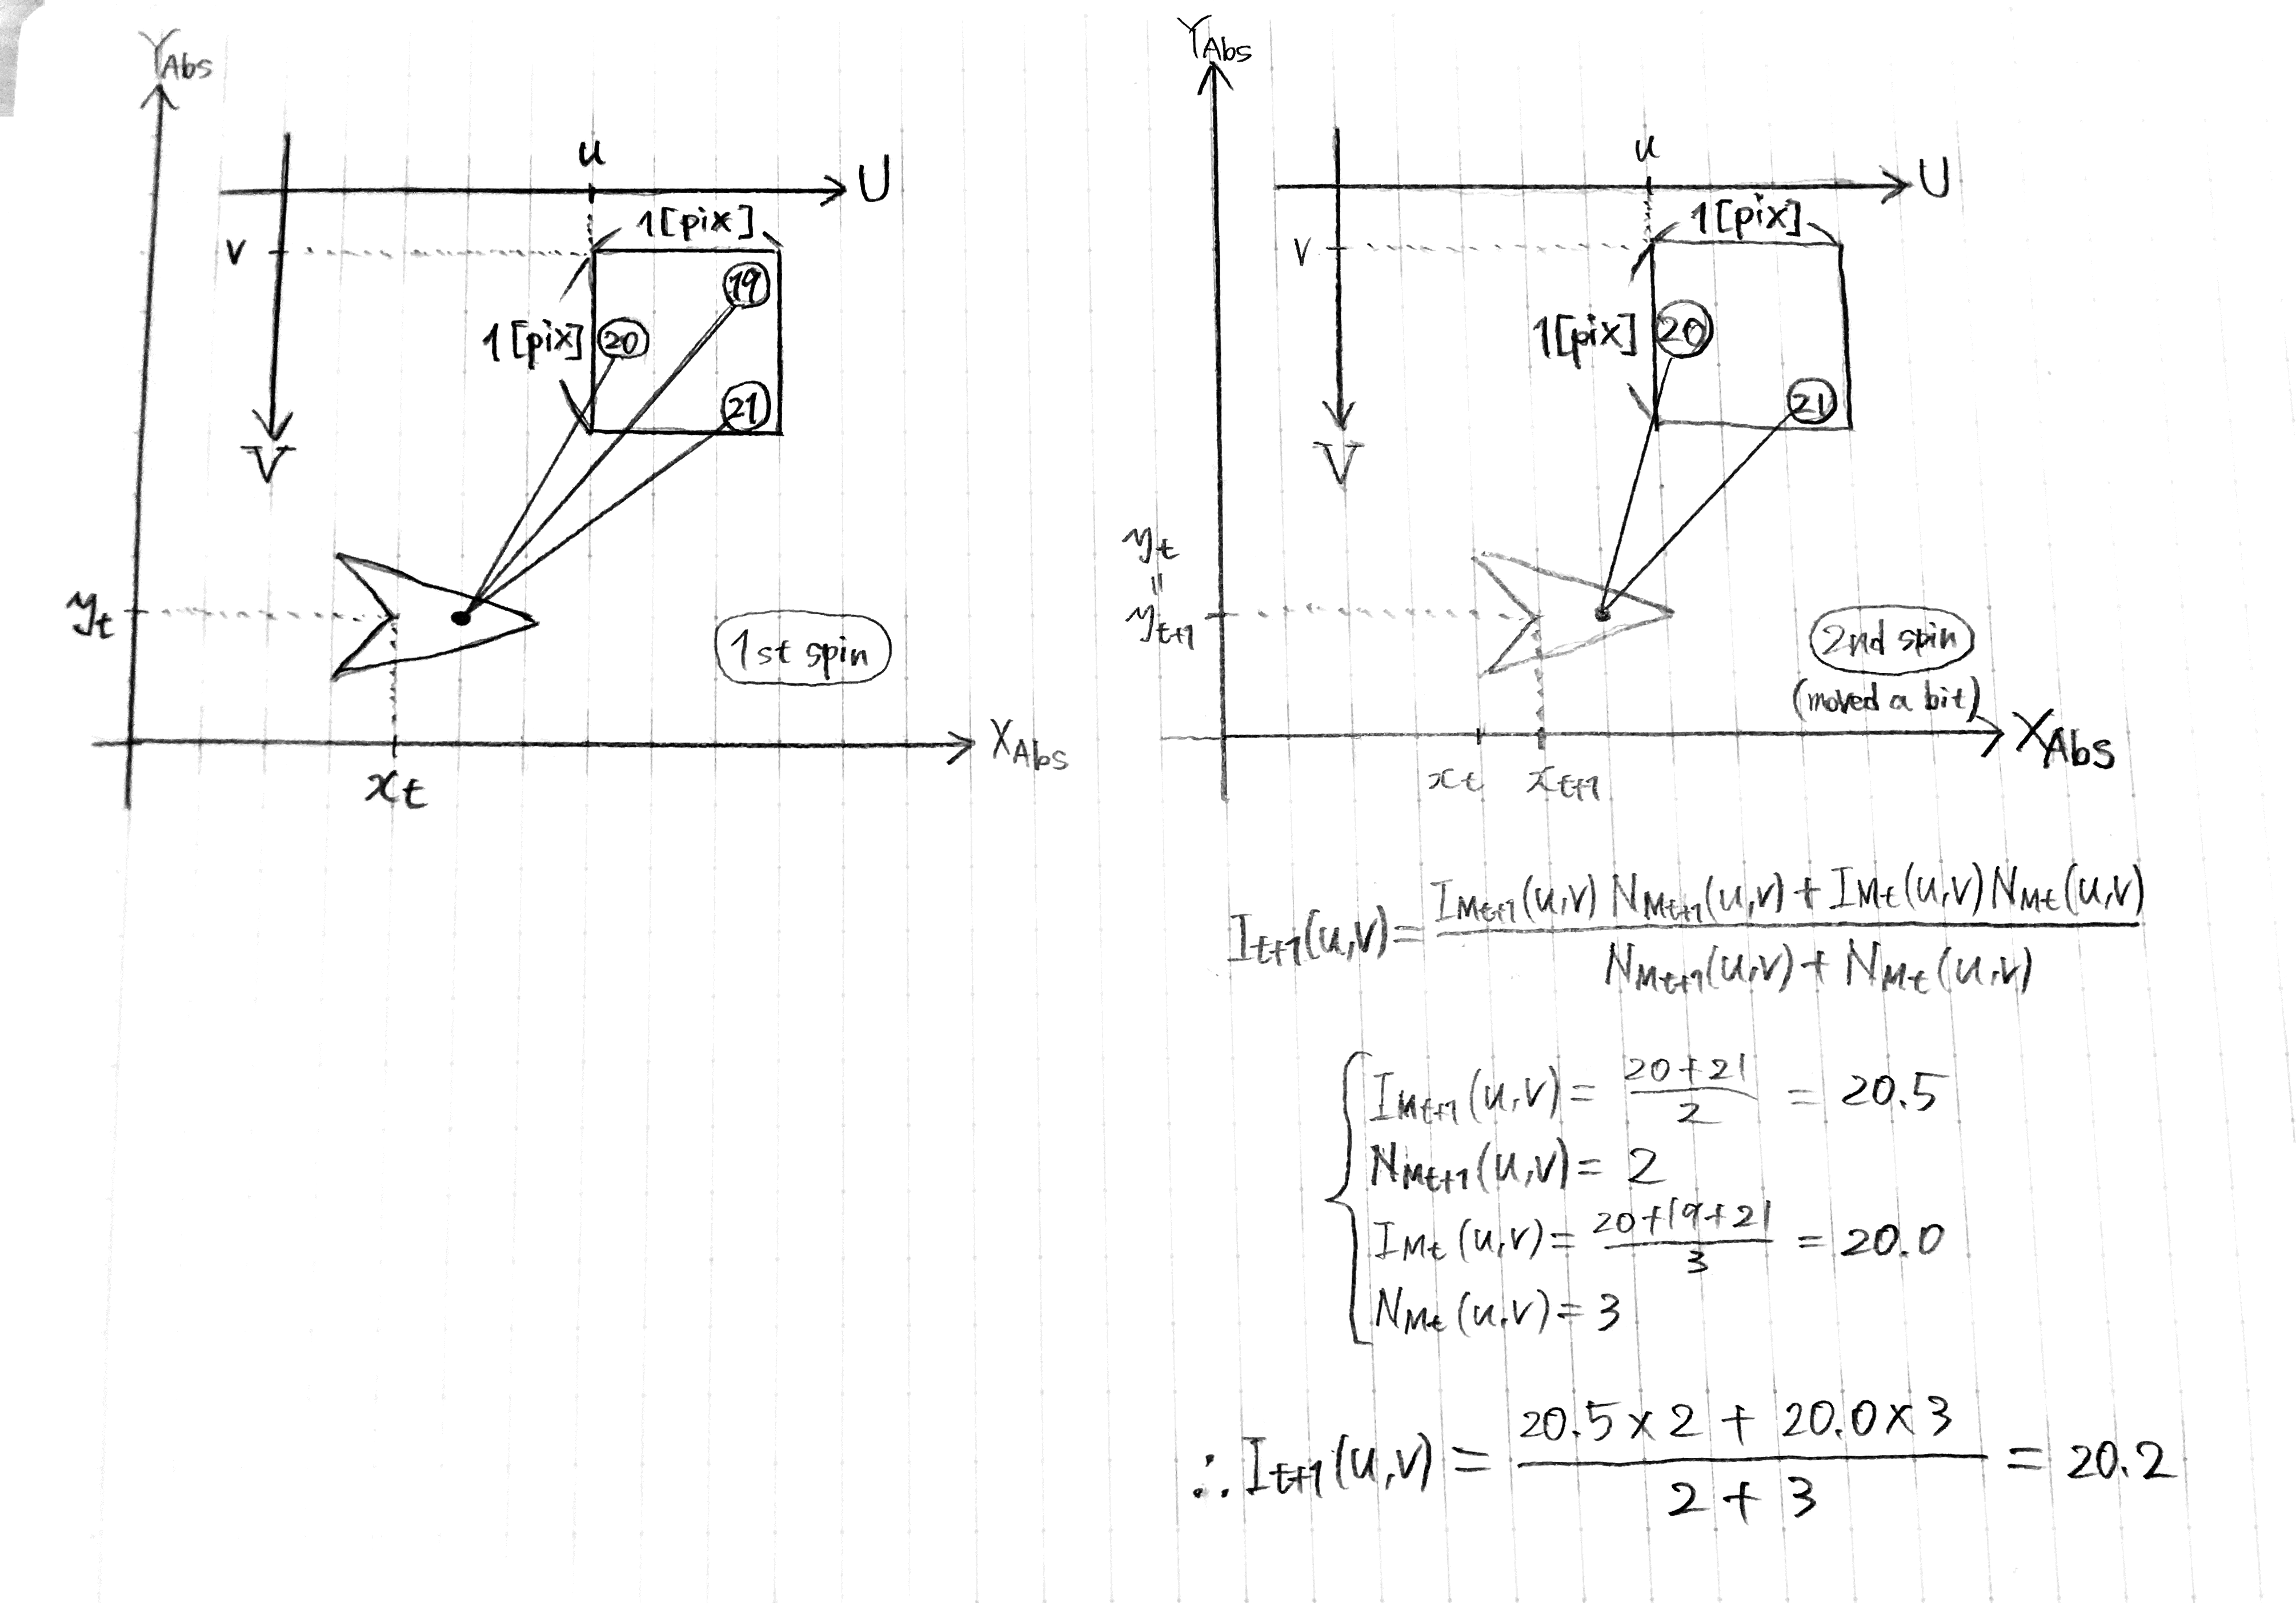 Y_Abs
u
U
1[pix]
v
19
1[pix]
20
21
V
y_t
1st spin
X_Abs
x_t
Y_Abs
u
U
1[pix]
v
20
1[pix]
21
V
y_t
=
y_t+1
2nd spin
(moved a bit)
X_Abs
x_t x_t+1
I_t+1(u,v) = (I_Mt+1(u,v) N_Mt+1(u,v) + I_Mt(u,v) N_Mt(u,v)) / (N_Mt+1(u,v) + N_Mt(u,v))
I_Mt+1(u,v) = (20+21)/2 = 20.5
N_Mt+1(u,v) = 2
I_Mt(u,v) = (20+19+21)/3 = 20.0
N_Mt(u,v) = 3
∴ I_t+1(u,v) = (20.5×2 + 20.0×3) / (2+3) = 20.2